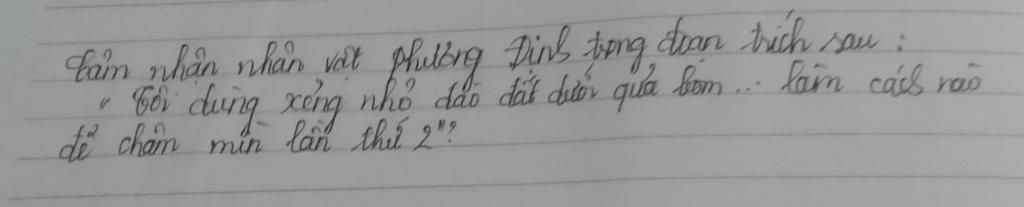 Cảm nhận nhân vật phương Định trong đoạn trích sau :
" Tôi dùng xẻng nhỏ đào đất dưới quả bom ... làm cách nào
để châm mìn lần thứ 2"?